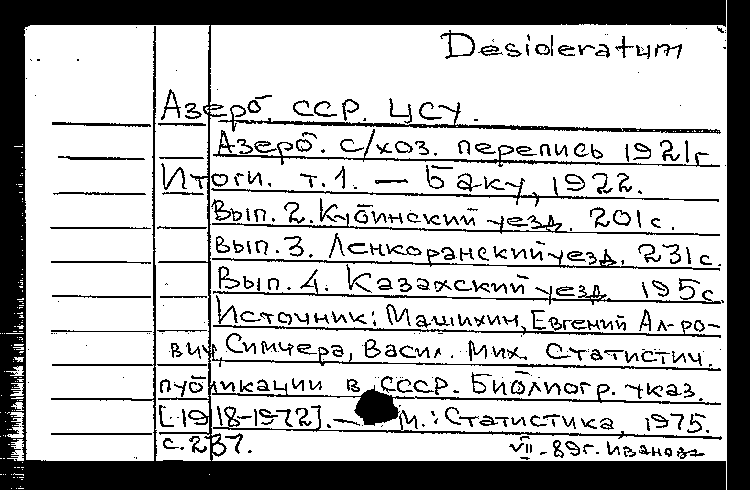 Desideratum
Азерб. ССР. ЦСУ.
Азерб. с/хоз. перепись 1921г
Итоги. т.1. — Баку, 1922.
Вып. 2. Кубинский уезд. 201с.
Вып. 3. Ленкоранский уезд. 231с.
Вып. 4. Казахский уезд. 195с
Источник: Машихин, Евгений Ал-ро-
вич, Симчера, Васил. Мих. Статистич.
публикации в СССР. Библиогр. указ.
[1918-1972]. — М.: Статистика, 1975.
с. 237.
VII-89г. Иванова